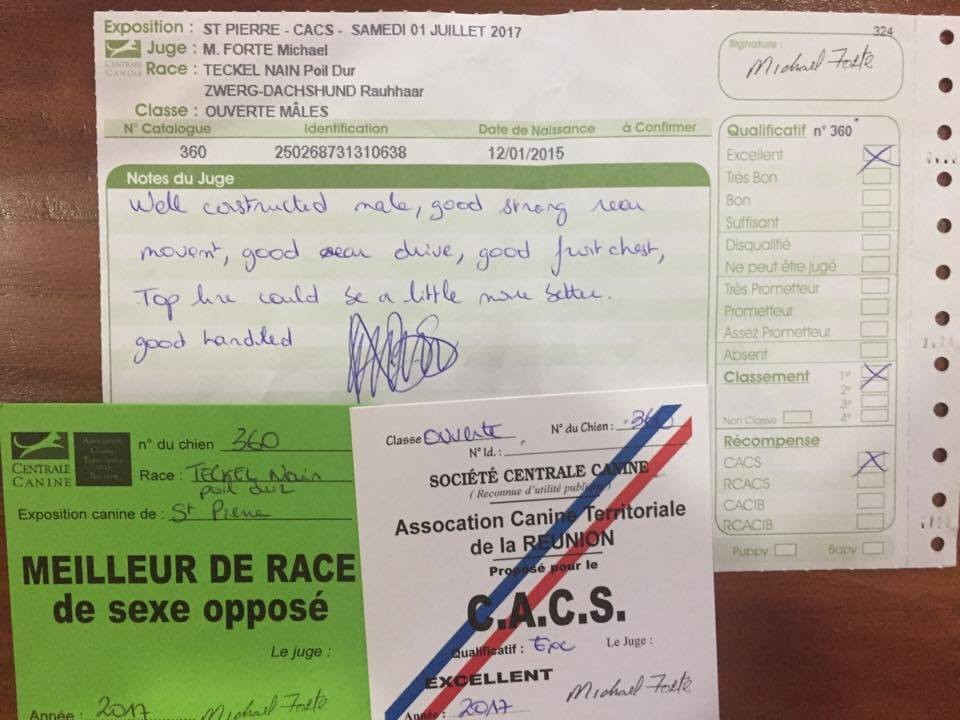 324
Exposition : ST PIERRE - CACS - SAMEDI 01 JUILLET 2017
CENTRALE CANINE
Juge : M. FORTE Michael
Race : TECKEL NAIN Poil Dur
ZWERG-DACHSHUND Rauhhaar
Classe : OUVERTE MÂLES
N° Catalogue Identification Date de Naissance à Confirmer
360 250268731310638 12/01/2015
Notes du Juge
Well constructed male, good strong rear
movent, good rear drive, good front chest,
Top line could be a little more better.
good handled
Signature :
Michael Forte
Qualificatif n° 360
Excellent
Très Bon
Bon
Suffisant
Disqualifié
Ne peut être jugé
Très Prometteur
Prometteur
Assez Prometteur
Absent
Classement 1er
2e
3e
4e
Non Classé
Récompense
CACS
RCACS
CACIB
RCACIB
Puppy Baby
CENTRALE
CANINE
n° du chien 360
Race : TECKEL Nain
poil dur
Exposition canine de : St Pierre
MEILLEUR DE RACE
de sexe opposé
Le juge :
Année : 2017 Michael Forte
Classe Ouverte N° du Chien : 360
N° Id. :
SOCIÉTÉ CENTRALE CANINE
( Reconnue d'utilité publique )
Assocation Canine Territoriale
de la REUNION
Proposé pour le
C.A.C.S.
Qualificatif : Exc Le Juge :
EXCELLENT
Michael Forte
Année : 2017